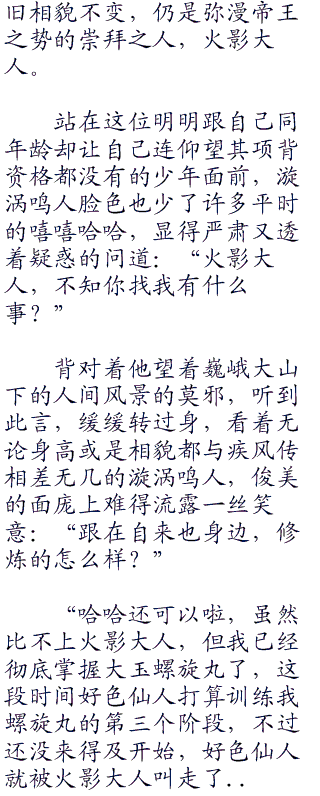 旧相貌不变，仍是弥漫帝王
之势的崇拜之人，火影大
人。
站在这位明明跟自己同
年龄却让自己连仰望其项背
资格都没有的少年面前，漩
涡鸣人脸色也少了许多平时
的嘻嘻哈哈，显得严肃又透
着疑惑的问道：“火影大
人，不知你找我有什么
事？”
背对着他望着巍峨大山
下的人间风景的莫邪，听到
此言，缓缓转过身，看着无
论身高或是相貌都与疾风传
相差无几的漩涡鸣人，俊美
的面庞上难得流露一丝笑
意：“跟在自来也身边，修
炼的怎么样？”
“哈哈还可以啦，虽然
比不上火影大人，但我已经
彻底掌握大玉螺旋丸了，这
段时间好色仙人打算训练我
螺旋丸的第三个阶段，不过
还没来得及开始，好色仙人
就被火影大人叫走了..